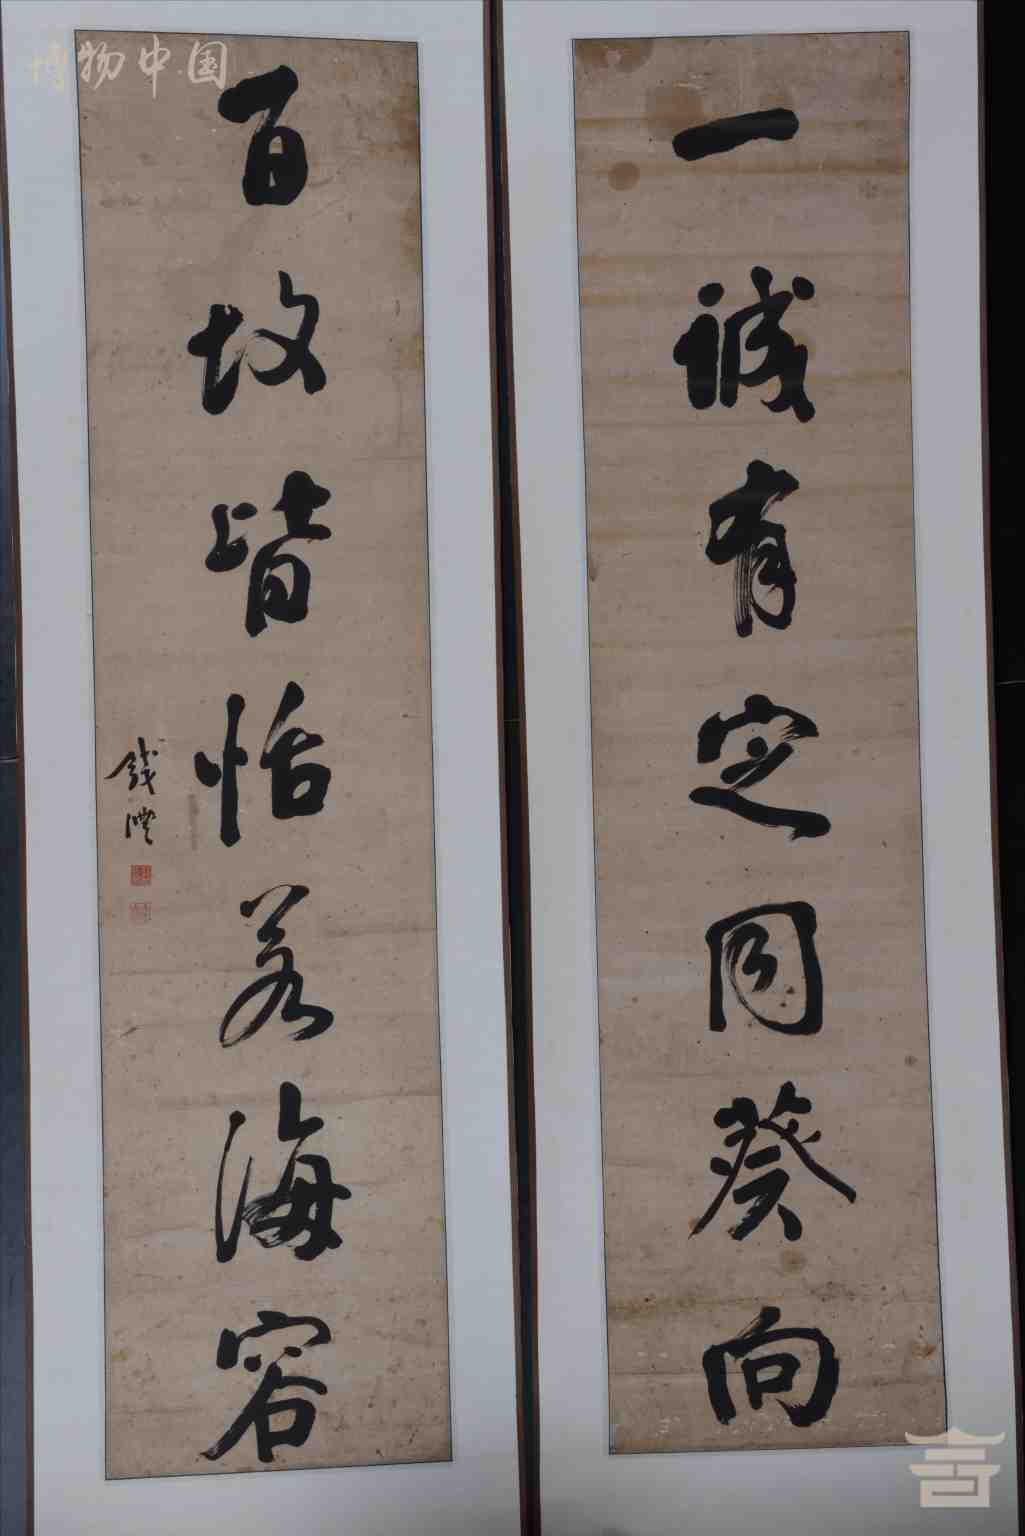 一誠有定同葵向
百故皆恬若海容
錢灃
博物中国